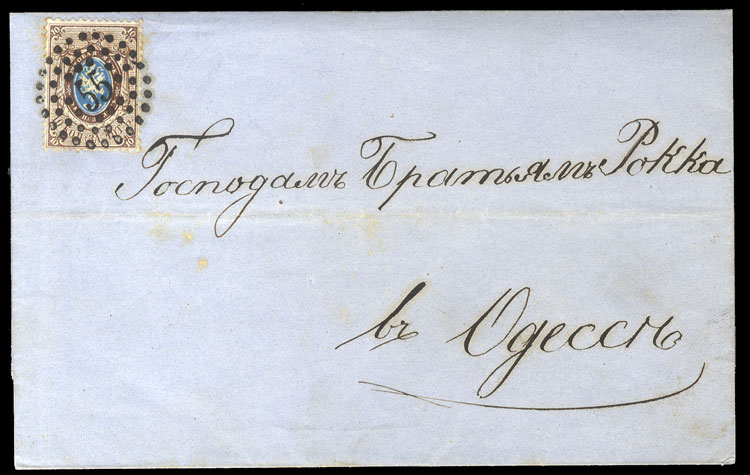 55
Господамъ Братьямъ Рокка
въ Одессѣ